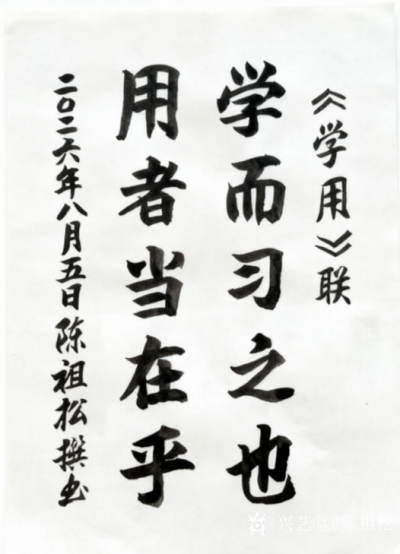 《学用》联
学而习之也
用者当在乎
二〇二六年八月五日陈祖松撰书